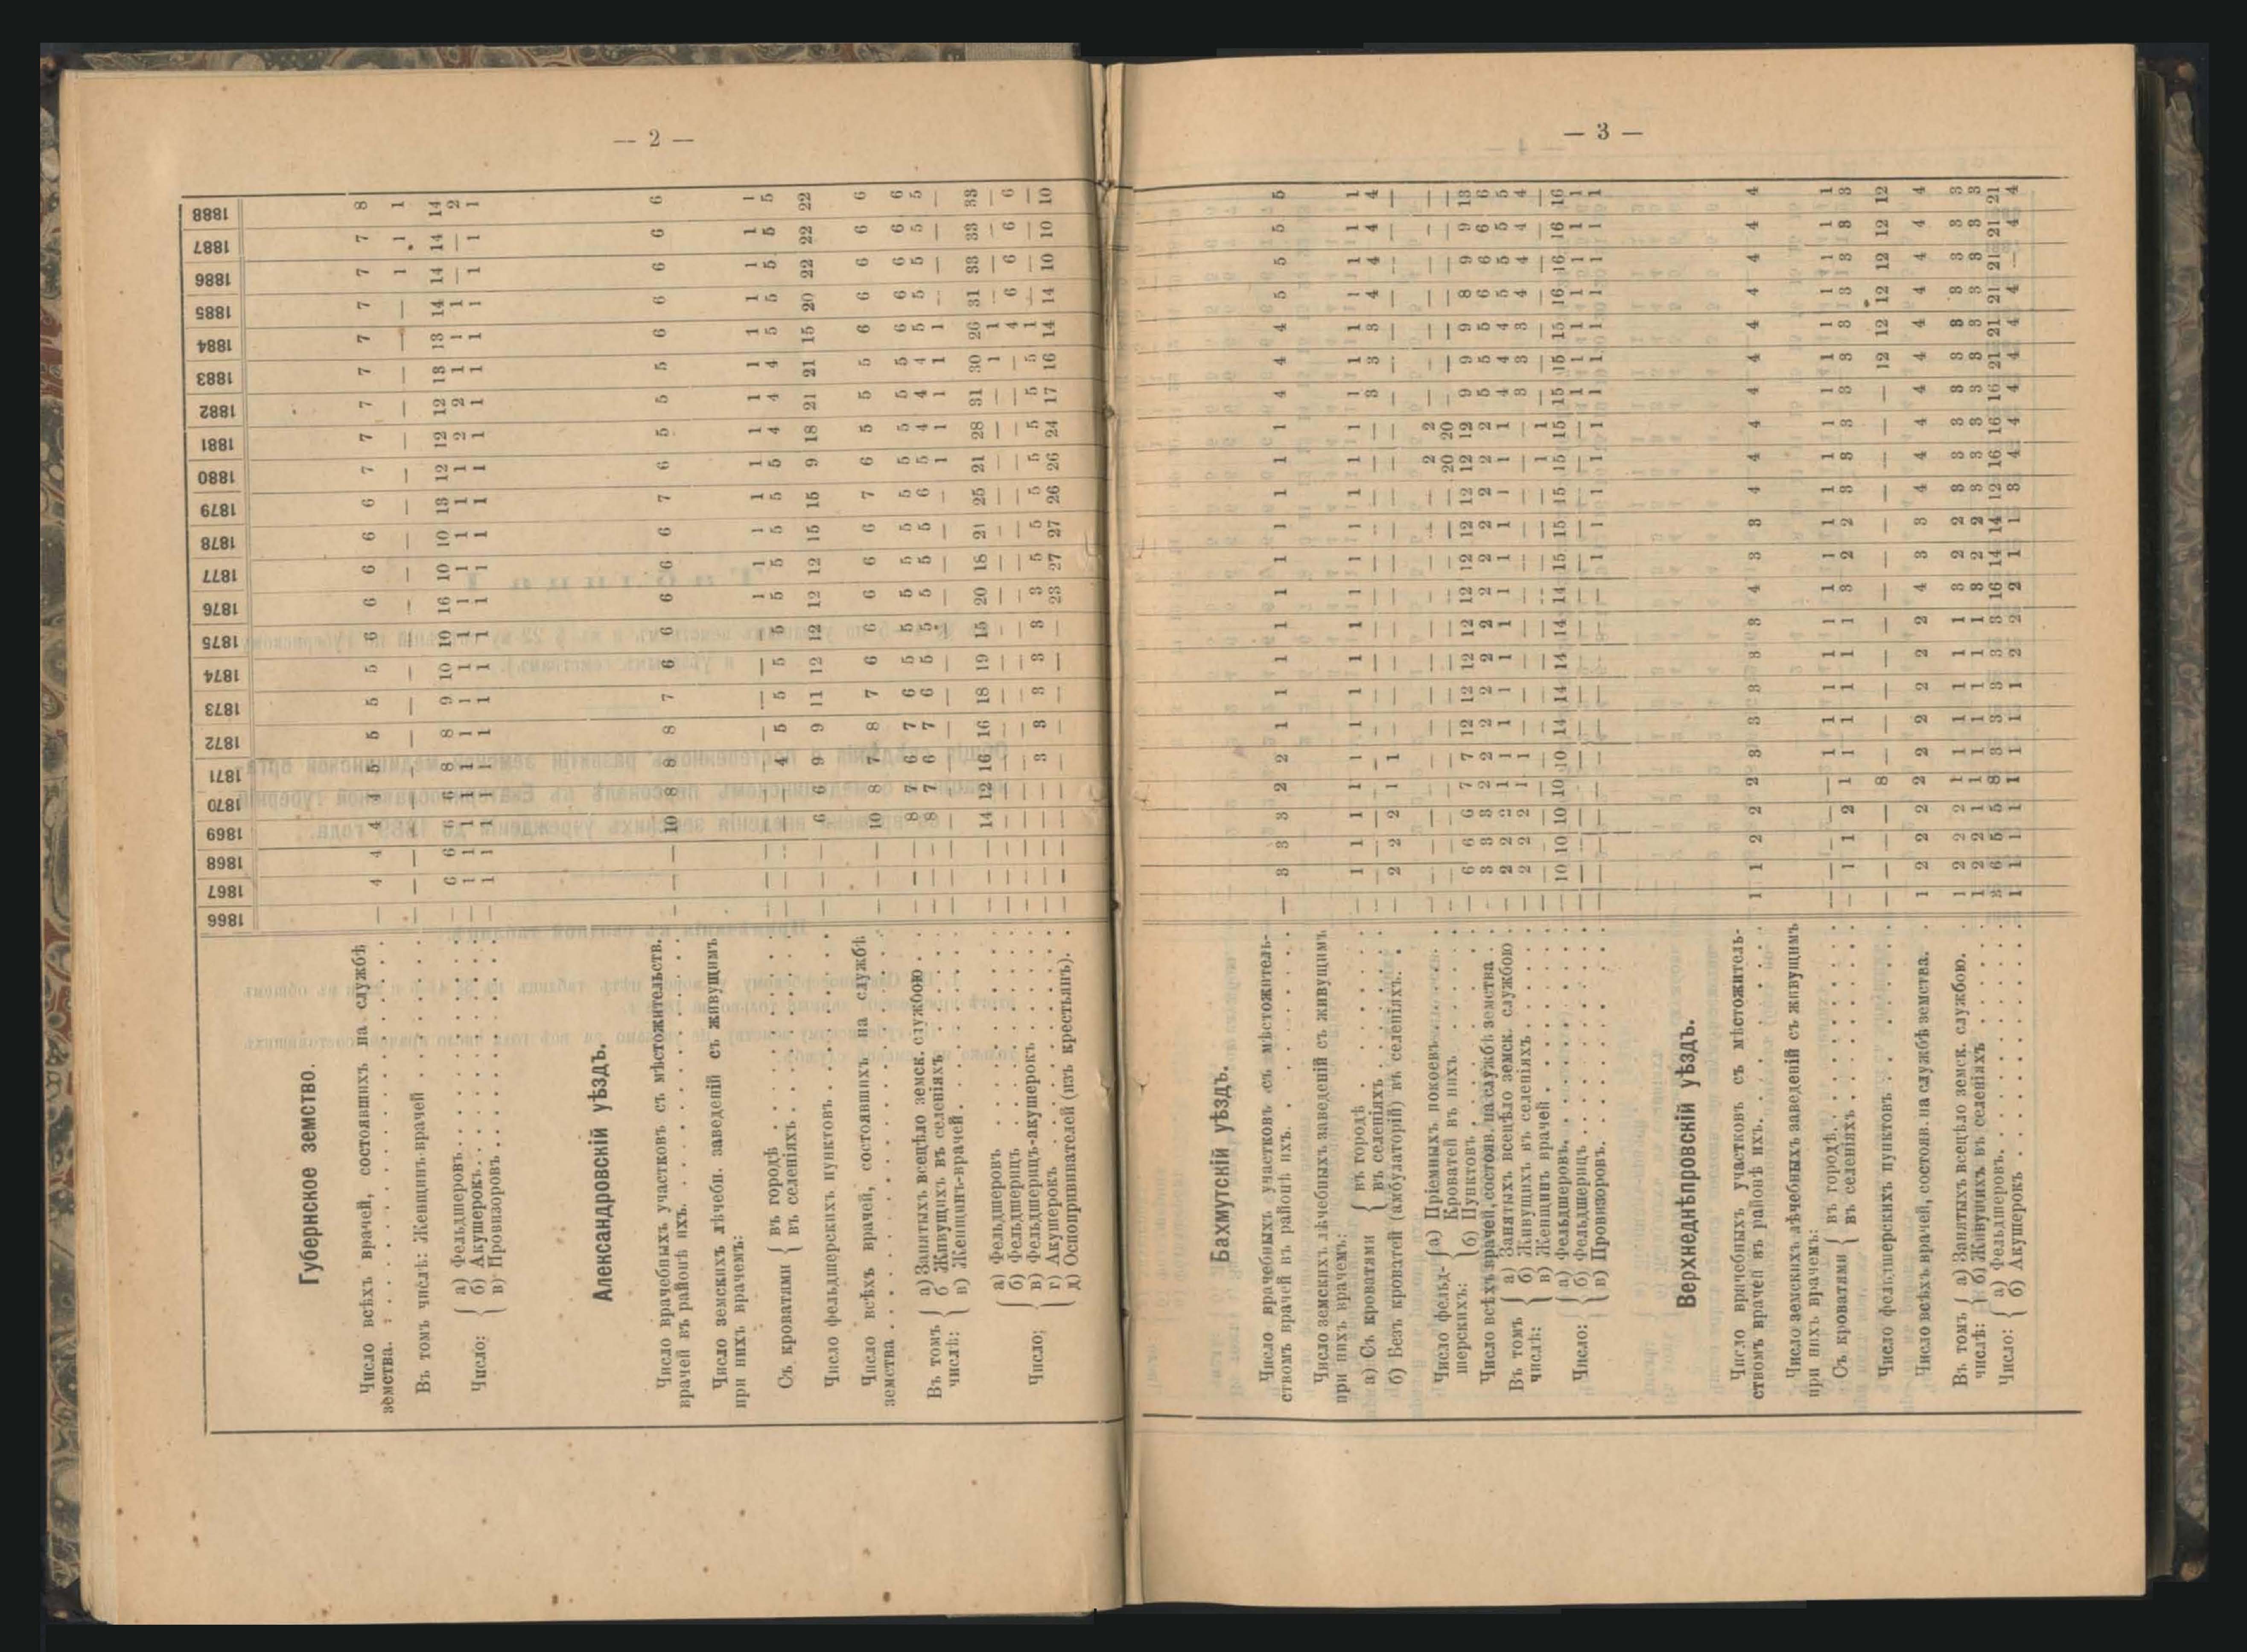 — 2 —
1866 1867 1868 1869 1870 1871 1872 1873 1874 1875 1876 1877 1878 1879 1880 1881 1882 1883 1884 1885 1886 1887 1888
Губернское земство.
Число всѣхъ врачей, состоявшихъ на службѣ
земства. — 4 4 4 4 5 5 5 5 6 6 6 6 6 7 7 7 7 7 7 7 7 8
Въ томъ числѣ: Женщинъ-врачей — — — — — — — — — — — — — — — — — — — — 1 1 1
Число: а) Фельдшеровъ — 6 6 6 6 8 8 9 10 10 16 10 10 13 12 12 12 13 13 14 14 14 14
б) Акушерокъ — 1 1 1 1 1 1 1 1 1 1 1 1 1 1 2 2 1 1 1 — — 2
в) Провизоровъ — 1 1 1 1 1 1 1 1 1 1 1 1 1 1 1 1 1 1 1 1 1 1
Александровскій уѣздъ.
Число врачебныхъ участковъ съ мѣстожительств.
врачей въ районѣ ихъ. — — — 10 8 8 8 7 6 6 6 6 6 7 6 5 5 5 6 6 6 6 6
Число земскихъ лѣчебн. заведеній съ живущимъ
при нихъ врачемъ:
Съ кроватями { въ городѣ — — — — — — — — — — 1 1 1 1 1 1 1 1 1 1 1 1 1
въ селеніяхъ — — — — — 4 5 5 5 5 5 5 5 5 5 4 4 4 5 5 5 5 5
Число фельдшерскихъ пунктовъ — — — 6 6 9 9 11 12 12 12 12 15 15 9 18 21 21 15 20 22 22 22
Число всѣхъ врачей, состоявшихъ на службѣ
земства — — — 10 8 7 8 7 6 6 6 6 6 7 6 5 5 5 6 6 6 6 6
Въ томъ числѣ: { а) Занятыхъ всецѣло земск. службою — — — 8 7 6 7 6 5 5 5 5 5 5 5 5 5 5 6 6 6 6 6
б Живущихъ въ селеніяхъ — — — 8 7 6 7 6 5 5 5 5 5 6 5 4 4 4 5 5 5 5 5
в) Женщинъ-врачей — — — — — — — — — — — — — — 1 1 1 1 1 — — — —
Число: { а) Фельдшеровъ — — — 14 12 16 16 18 19 15 20 18 21 25 21 28 31 30 26 31 33 33 33
б) Фельдшерицъ — — — — — — — — — — — — — — — — — 1 1 — — — —
в) Фельдшерицъ-акушерокъ — — — — — — — — — — — — — — — — — — 4 6 6 6 6
г) Акушерокъ — — — — — 3 3 3 3 3 3 5 5 5 5 5 5 5 1 — — — —
д) Оспопрививателей (изъ крестьянъ). — — — — — — — — — — 23 27 27 26 26 24 17 16 14 14 10 10 10
— 3 —
Бахмутскій уѣздъ.
Число врачебныхъ участковъ съ мѣстожитель-
ствомъ врачей въ районѣ ихъ. — 3 3 3 2 2 1 1 1 1 1 1 1 1 1 1 4 4 4 5 5 5 5
Число земскихъ лѣчебныхъ заведеній съ живущимъ
при нихъ врачемъ:
а) Съ кроватями { въ городѣ — 1 1 1 1 1 1 1 1 1 1 1 1 1 1 1 1 1 1 1 1 1 1
въ селеніяхъ — — — — — — — — — — — — — — — — 3 3 3 4 4 4 4
б) Безъ кроватей (амбулаторій) въ селеніяхъ. — 2 2 2 1 1 — — — — — — — — — — — — — — — — —
Число фельд-шерскихъ: { а) Пріемныхъ покоевъ — — — — — — — — — — — — — — 2 2 — — — — — — —
Кроватей въ нихъ — — — — — — — — — — — — — — 20 20 — — — — — — —
б) Пунктовъ — 6 6 6 7 7 12 12 12 12 12 12 12 12 12 12 9 9 9 8 9 9 13
Число всѣхъ врачей, состояв. на службѣ земства — 3 3 3 2 2 2 2 2 2 2 2 2 2 2 2 5 5 5 6 6 6 6
Въ томъ числѣ: { а) Занятыхъ всецѣло земск. службою — 2 2 2 1 1 1 1 1 1 1 1 1 1 1 1 4 4 4 5 5 5 5
б) Живущихъ въ селеніяхъ — 2 2 2 1 1 — — — — — — — — — — 3 3 3 4 4 4 4
в) Женщинъ врачей — — — — — — — — — — — — — — 1 1 — — — — — — —
Число: { а) Фельдшеровъ — 10 10 10 10 10 14 14 14 14 14 15 15 15 15 15 15 15 15 16 16 16 16
б) Фельдшерицъ — — — — — — — — — — — — — — — — 1 1 1 1 1 1 1
в) Провизоровъ — — — — — — — — — — — 1 1 1 1 1 1 1 1 1 1 1 1
Верхнеднѣпровскій уѣздъ.
Число врачебныхъ участковъ съ мѣстожитель-
ствомъ врачей въ районѣ ихъ. 1 1 2 2 2 3 3 3 3 3 4 3 3 4 4 4 4 4 4 4 4 4 4
Число земскихъ лѣчебныхъ заведеній съ живущимъ
при нихъ врачемъ:
Съ кроватями { въ городѣ — — — — — 1 1 1 1 1 1 1 1 1 1 1 1 1 1 1 1 1 1
въ селеніяхъ — 1 1 2 1 1 1 1 1 1 3 2 2 3 3 3 3 3 3 3 3 3 3
Число фельдшерскихъ пунктовъ — — — — 8 — — — — — — — — — — — — 12 12 12 12 12 12
Число всѣхъ врачей, состояв. на службѣ земства. 1 2 2 2 2 2 2 2 2 2 4 3 3 4 4 4 4 4 4 4 4 4 4
Въ томъ числѣ: { а) Занятыхъ всецѣло земск. службою. 1 2 2 2 1 1 1 1 1 1 3 2 2 3 3 3 3 3 3 3 3 3 3
б) Живущихъ въ селеніяхъ 1 2 2 1 1 1 1 1 1 1 3 2 2 3 3 3 3 3 3 3 3 3 3
Число: { а) Фельдшеровъ 3 6 5 5 8 3 3 3 3 3 16 14 14 12 16 16 16 21 21 21 21 21 21
б) Акушерокъ 1 1 1 1 1 1 1 1 2 2 2 1 1 3 4 4 4 4 4 4 — 4 4